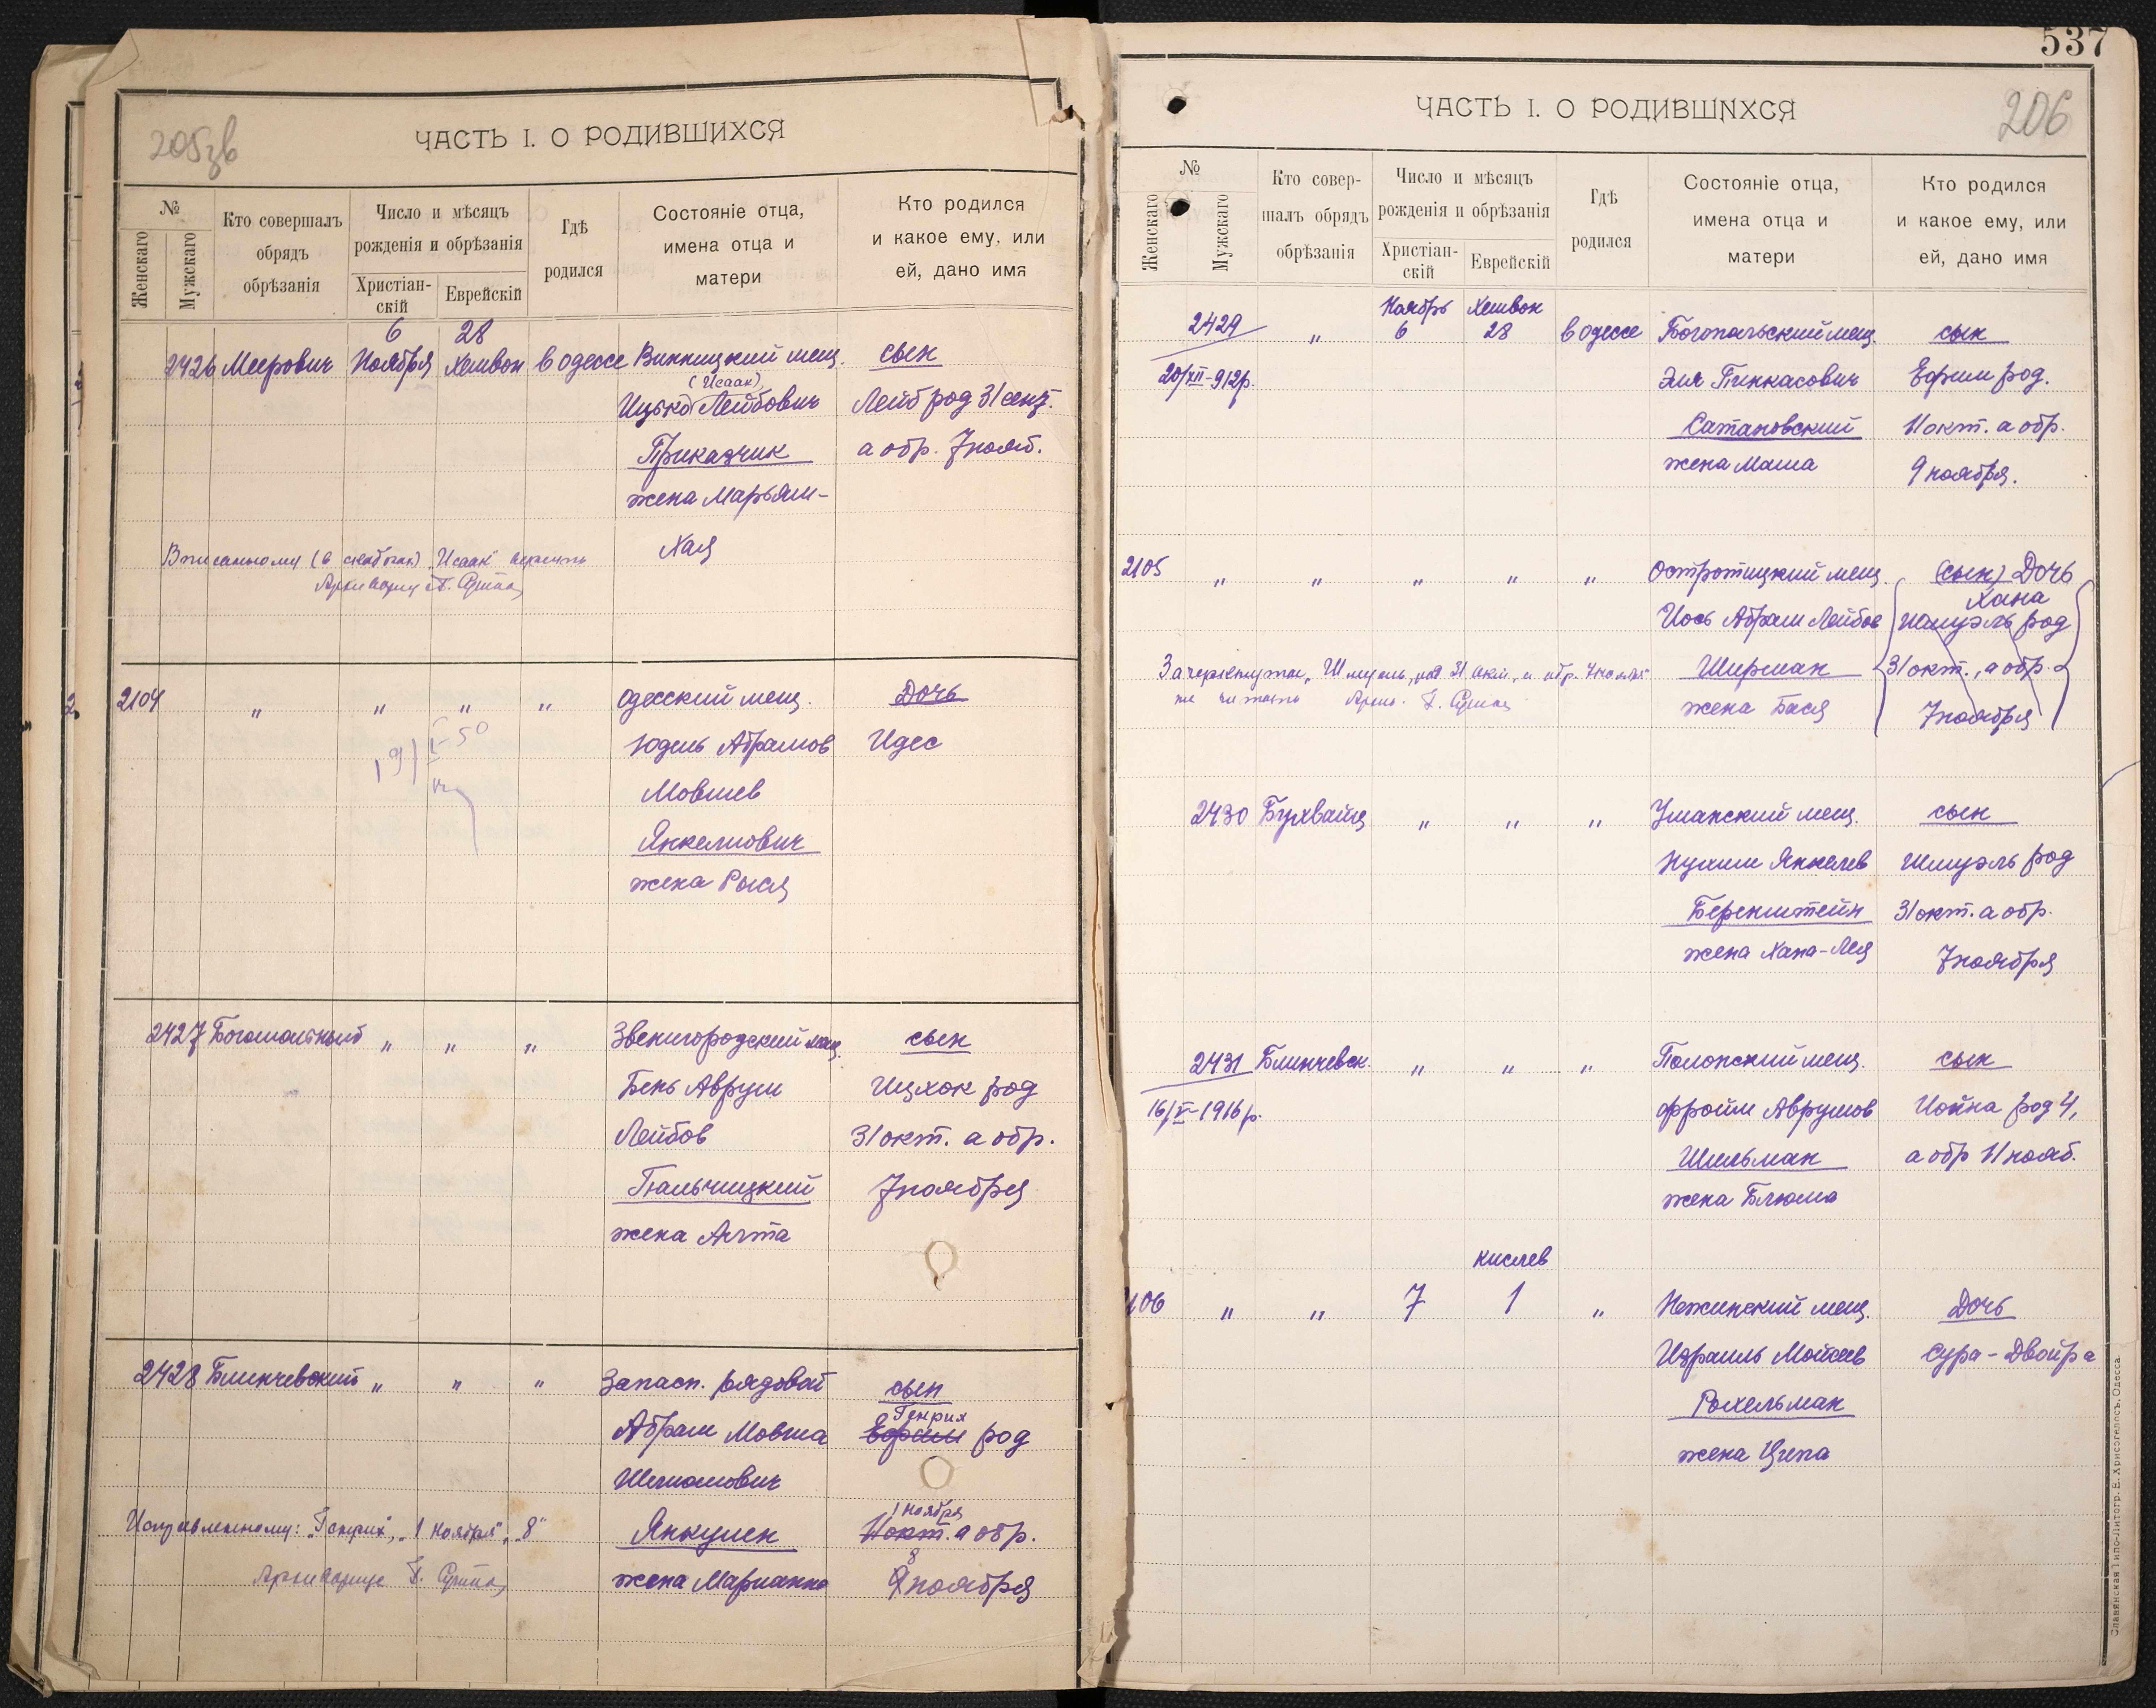 205зв
ЧАСТЬ I. О РОДИВШИХСЯ
№
Женскаго
Мужскаго
Кто совершалъ обрядъ обрѣзанія
Число и мѣсяцъ рожденія и обрѣзанія
Христіан-скій
Еврейскій
Гдѣ родился
Состояніе отца, имена отца и матери
Кто родился и какое ему, или ей, дано имя
6 28
2426 Меерович Ноября Хешвон в одессе Винницкий мещ. сын
(Исаак)
Ицько Лейбович Лейб род 31 сент.
Приказчик а обр. 7 нояб.
жена Марьям-
Хая
Вписанному (в скобках) „Исаак" верить
Архивариус
2104 " " " " одесский мещ. Дочь
Юдель Абрамов Идес
Мовшев
Янкелиович
жена Рыся
19/I-50
2427 Богомольный " " " Звенигородский мещ. сын
Бень Аврум Ицхок род
Лейбов 31 окт. а обр.
Гальчицкий 7 ноября
жена
2428 Блинчевский " " " Запасн. рядовой сын
Генрих
Абрам Мовша Ефрим род
Шлиомович
1 ноября
Исправленному: „Генрих", „1 ноября", „8" Янкулен 11 окт. а обр.
8
жена Марианна 9 ноября
537
206
ЧАСТЬ I. О РОДИВШИХСЯ
№
Женскаго
Мужскаго
Кто совер-шалъ обрядъ обрѣзанія
Число и мѣсяцъ рожденія и обрѣзанія
Христіан-скій
Еврейскій
Гдѣ родился
Состояніе отца, имена отца и матери
Кто родился и какое ему, или ей, дано имя
Ноябрь Хешвон
2429 " 6 28 в одессе Богопольский мещ. сын
20/XII-912р. Эля Пинкасович Ефрим род.
Сатановский 11 окт. а обр.
жена Маша 9 ноября.
2105 " " " " " мещ. (сын) Дочь
Хана
Иось Абрам Лейбов Шмуэль род
Зачеркнутое „Шмуэль, род 31 окт., а обр. 7 ноября" Ширман 31 окт., а обр.
не читать жена Бася 7 ноября
2430 Бухвайц " " " Уманский мещ. сын
Нухим Янкелев Шмуэль род
Беренштейн 31 окт. а обр.
жена Хана-Лея 7 ноября
2431 Блинчевск. " " " Полонский мещ. сын
16/V-1916р. Фроим Аврумов Иойна род 4,
Шильман а обр 11 нояб.
жена Блюма
кислев
106 " " 7 1 " Нежинский мещ. Дочь
Израиль Мойсеев Сура-Двойра
Рохельман
жена Ципа
Славянская Типо-Литогр. Е. Хрисогелосъ. Одесса.